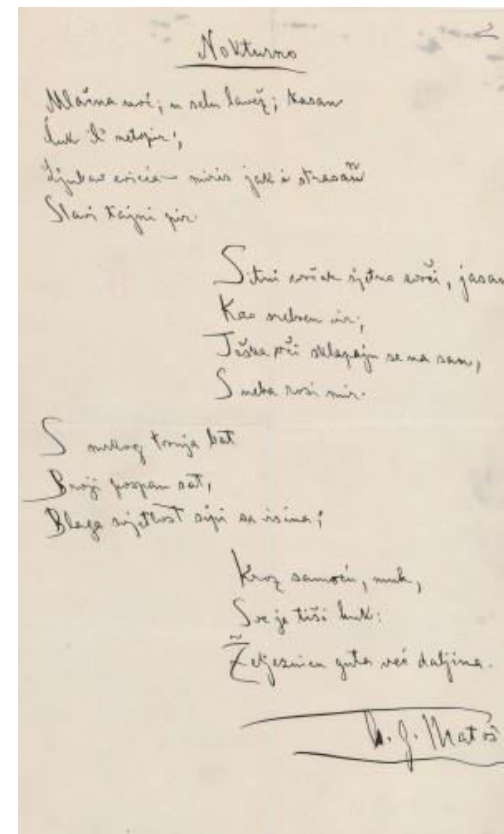 Nokturno
Mlačna noć; u selu lavež; kasan
Ćuk il' netopir;
Ljubav cvieća - miris jak i strasan
Slavi tajni pir.
Sitni cvrčak sjetno cvrči, jasan
Kao srebren vir;
Teške oči sklapaju se na san,
S neba rosi mir.
S mrkog tornja bat
Broji pospan sat,
Blaga svjetlost sipi sa visina;
Kroz samoću, muk,
Sve je tiši huk:
Željeznicu guta već daljina.
A. G. Matoš